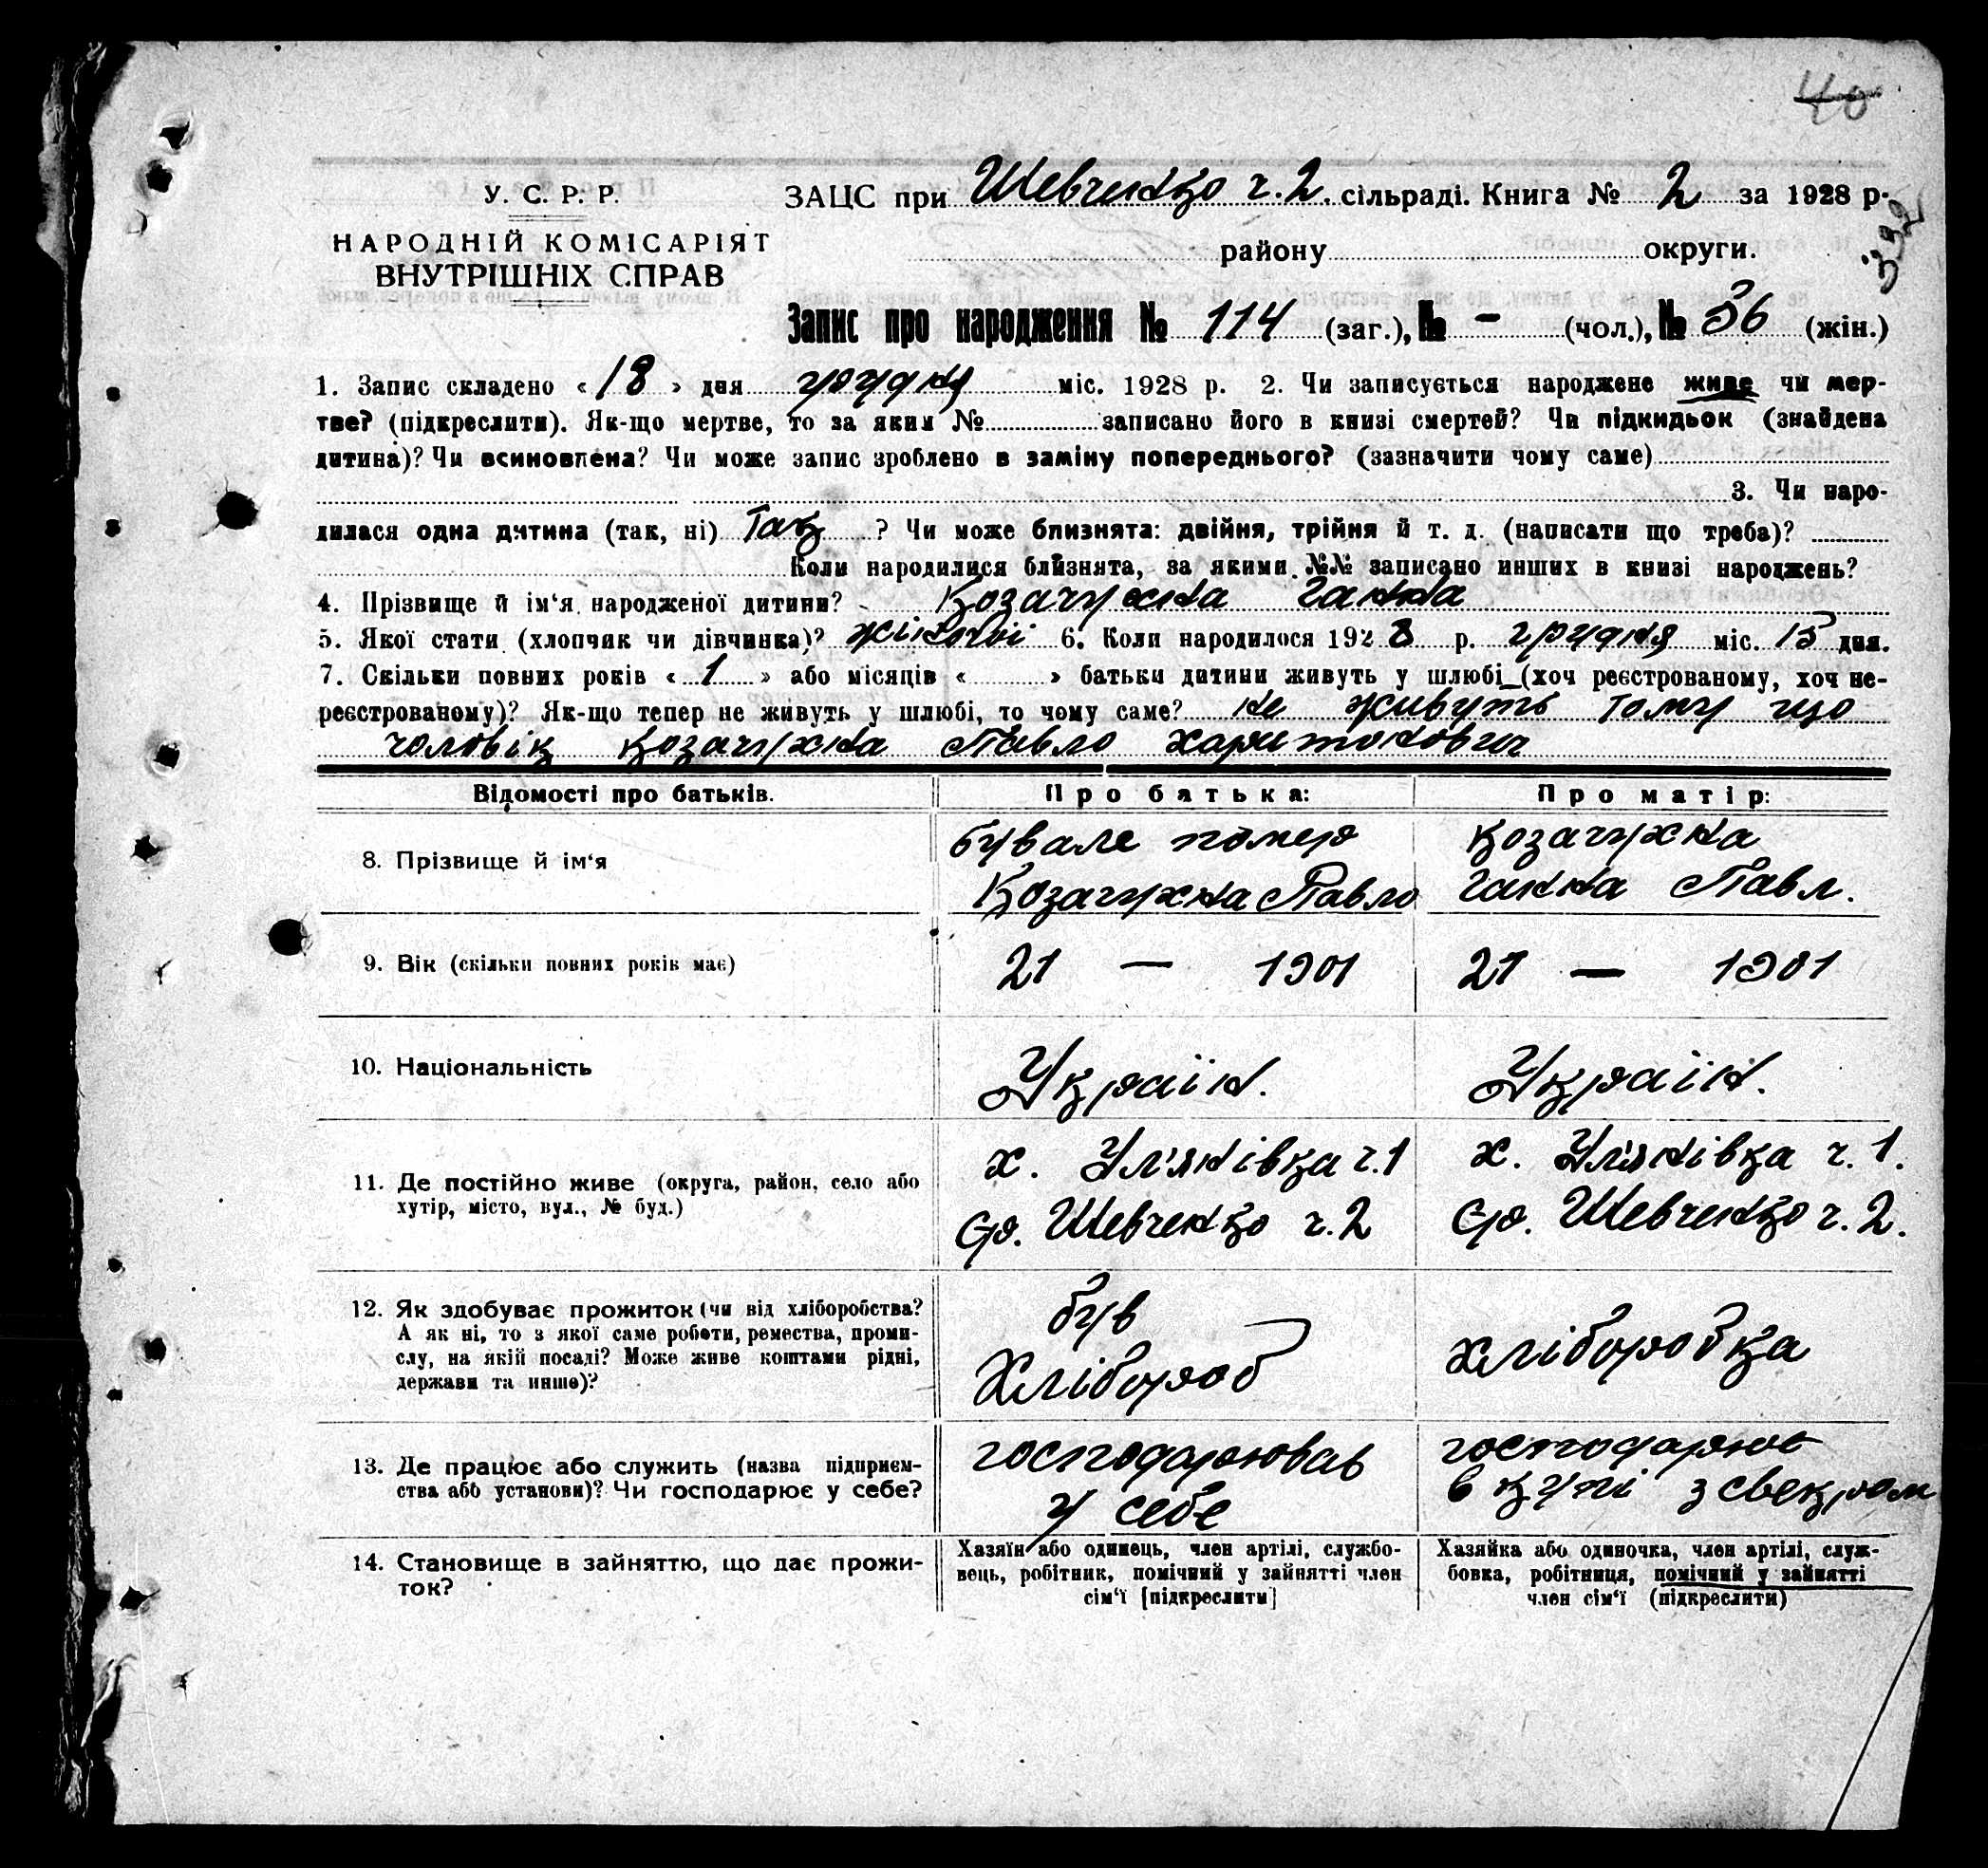 40
У. С. Р. Р.
НАРОДНІЙ КОМІСАРІЯТ
ВНУТРІШНІХ СПРАВ
ЗАЦС при Шевченко ч. 2. сільраді. Книга № 2 за 1928 р.
району округи.
332
Запис про народження № 114 (заг.), № - (чол.), № 56 (жін.)
1. Запис складено «18» дня грудня міс. 1928 р. 2. Чи записується народжене живе чи мер-
тве? (підкреслити). Як-що мертве, то за яким № записано його в книзі смертей? Чи підкидьок (знайдена
дитина)? Чи всиновлена? Чи може запис зроблено в заміну попереднього? (зазначити чому саме)
3. Чи наро-
дилася одна дитина (так, ні) Так ? Чи може близнята: двійня, трійня й т. д. (написати що треба)?
Коли народилися близнята, за якими №№ записано инших в книзі народжень?
4. Прізвище й ім‘я народженої дитини? Козачухна Ганна
5. Якої стати (хлопчик чи дівчинка)? жіночої 6. Коли народилося 1928 р. грудня міс. 15 дня.
7. Скільки повних років «1» або місяців « » батьки дитини живуть у шлюбі (хоч реєстрованому, хоч не-
реєстрованому)? Як-що тепер не живуть у шлюбі, то чому саме? не живуть тому що
чоловік Козачухна Павло Харитонович
Відомості про батьків.
Про батька:
Про матір:
8. Прізвище й ім‘я
помер
Козачухна Павло
Козачухна
Ганна Павл.
9. Вік (скільки повних років має)
21 — 1901
21 — 1901
10. Національність
Україн.
Україн.
11. Де постійно живе (округа, район, село або
хутір, місто, вул., № буд.)
х. Ул'янівка ч. 1
Ср. Шевченко ч. 2
х. Ул'янівка ч. 1.
Ср. Шевченко ч. 2.
12. Як здобуває прожиток (чи від хліборобства?
А як ні, то з якої саме роботи, ремества, проми-
слу, на якій посаді? Може живе коштами рідні,
держави та инше)?
був
Хлібороб
хліборобка
13. Де працює або служить (назва підприєм-
ства або установи)? Чи господарює у себе?
господарював
у себе
господарює
в купі з свекром
14. Становище в зайняттю, що дає прожи-
ток?
Хазяїн або одинець, член артілі, службо-
вець, робітник, помічний у зайнятті член
сім‘ї [підкреслити]
Хазяйка або одиночка, член артілі, служ-
бовка, робітниця, помічний у зайнятті
член сім‘ї (підкреслити)